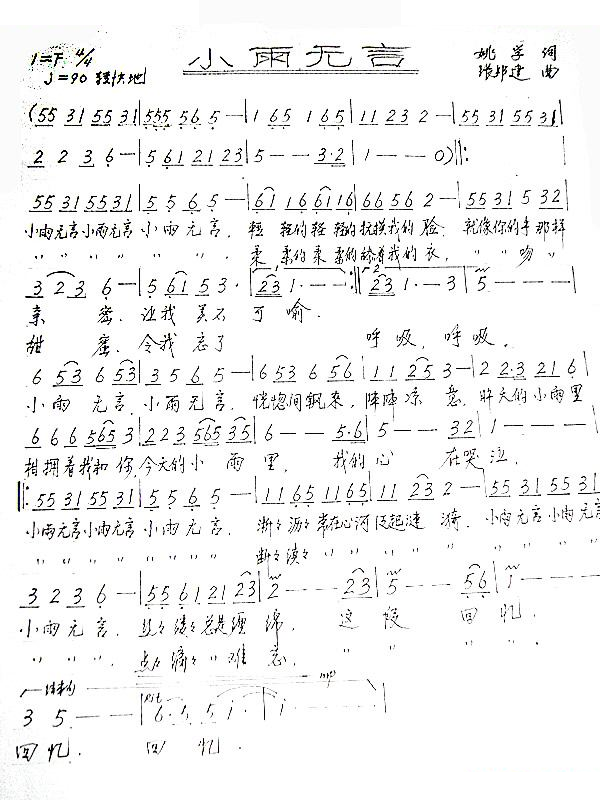 小雨无言
1=F 4/4
♩=90 轻快地
姚学词
张邦建曲
(55 31 55 31 | 555 56 5 — | 1 65 1 65 | 11 23 2 — | 55 31 55 31 |
2 2 3 6 — | 5 61 21 23 | 5 — — 3·2 | 1 — — 0) ‖:
55 31 55 31 | 5 5 6 5 — | 61 16 61 16 | 66 56 2 — | 55 31 5 32 |
小雨无言小雨无言 小雨无言. 轻 轻的轻轻的抚摸我的脸. 就像你的手那样
〃 〃 〃 〃 〃 〃 〃 〃. 柔 柔的柔柔的 我的衣, 〃 〃 吻 〃
3 2 3 6 — | 5 61 53 3· | 1 23 1 · — — :‖ 2 23 1 · — 3 | 5 — — — |
亲 密. 让我美不可喻.
甜 蜜. 令我忘了 呼吸, 呼吸.
6 53 6 53 | 3 5 6 5 — | 6 53 6 56 | 11 2 25 3 — | 2 2·3 21 6 |
小雨 无言. 小雨无言. 恍惚间飘来, 阵阵凉意. 昨天的小雨里
6 6 6 565 3 | 2 23 565 35 | 6 — — 5·6 | 5 — — 32 | 1 — — — |
相拥着我和你, 今天的小 雨里, 我的心 在哭泣.
‖: 55 31 55 31 | 5 5 6 5 — | 11 65 11 65 | 11 23 2 — | 55 31 55 31 |
小雨无言小雨无言 小雨无言. 淅々沥々常在心河泛起涟漪. 小雨无言小雨无言
〃 〃 〃 〃 〃 〃 〃 〃. 断々续々 〃 〃 〃 〃 〃 〃 〃 〃 〃 〃
3 2 3 6 — | 55 61 21 23 | 2 — — 23 | 5 — — 56 | 1 — — — |
小雨无言. 丝々缕々总是缠绵. 这段 回忆.
〃 〃 〃. 点々滴々〃难忘. 〃 〃 〃 〃
结束句
rit mp
3 5 — — | 6 · 5 5 1 · | 1 · — — — ‖
回忆. 回忆.